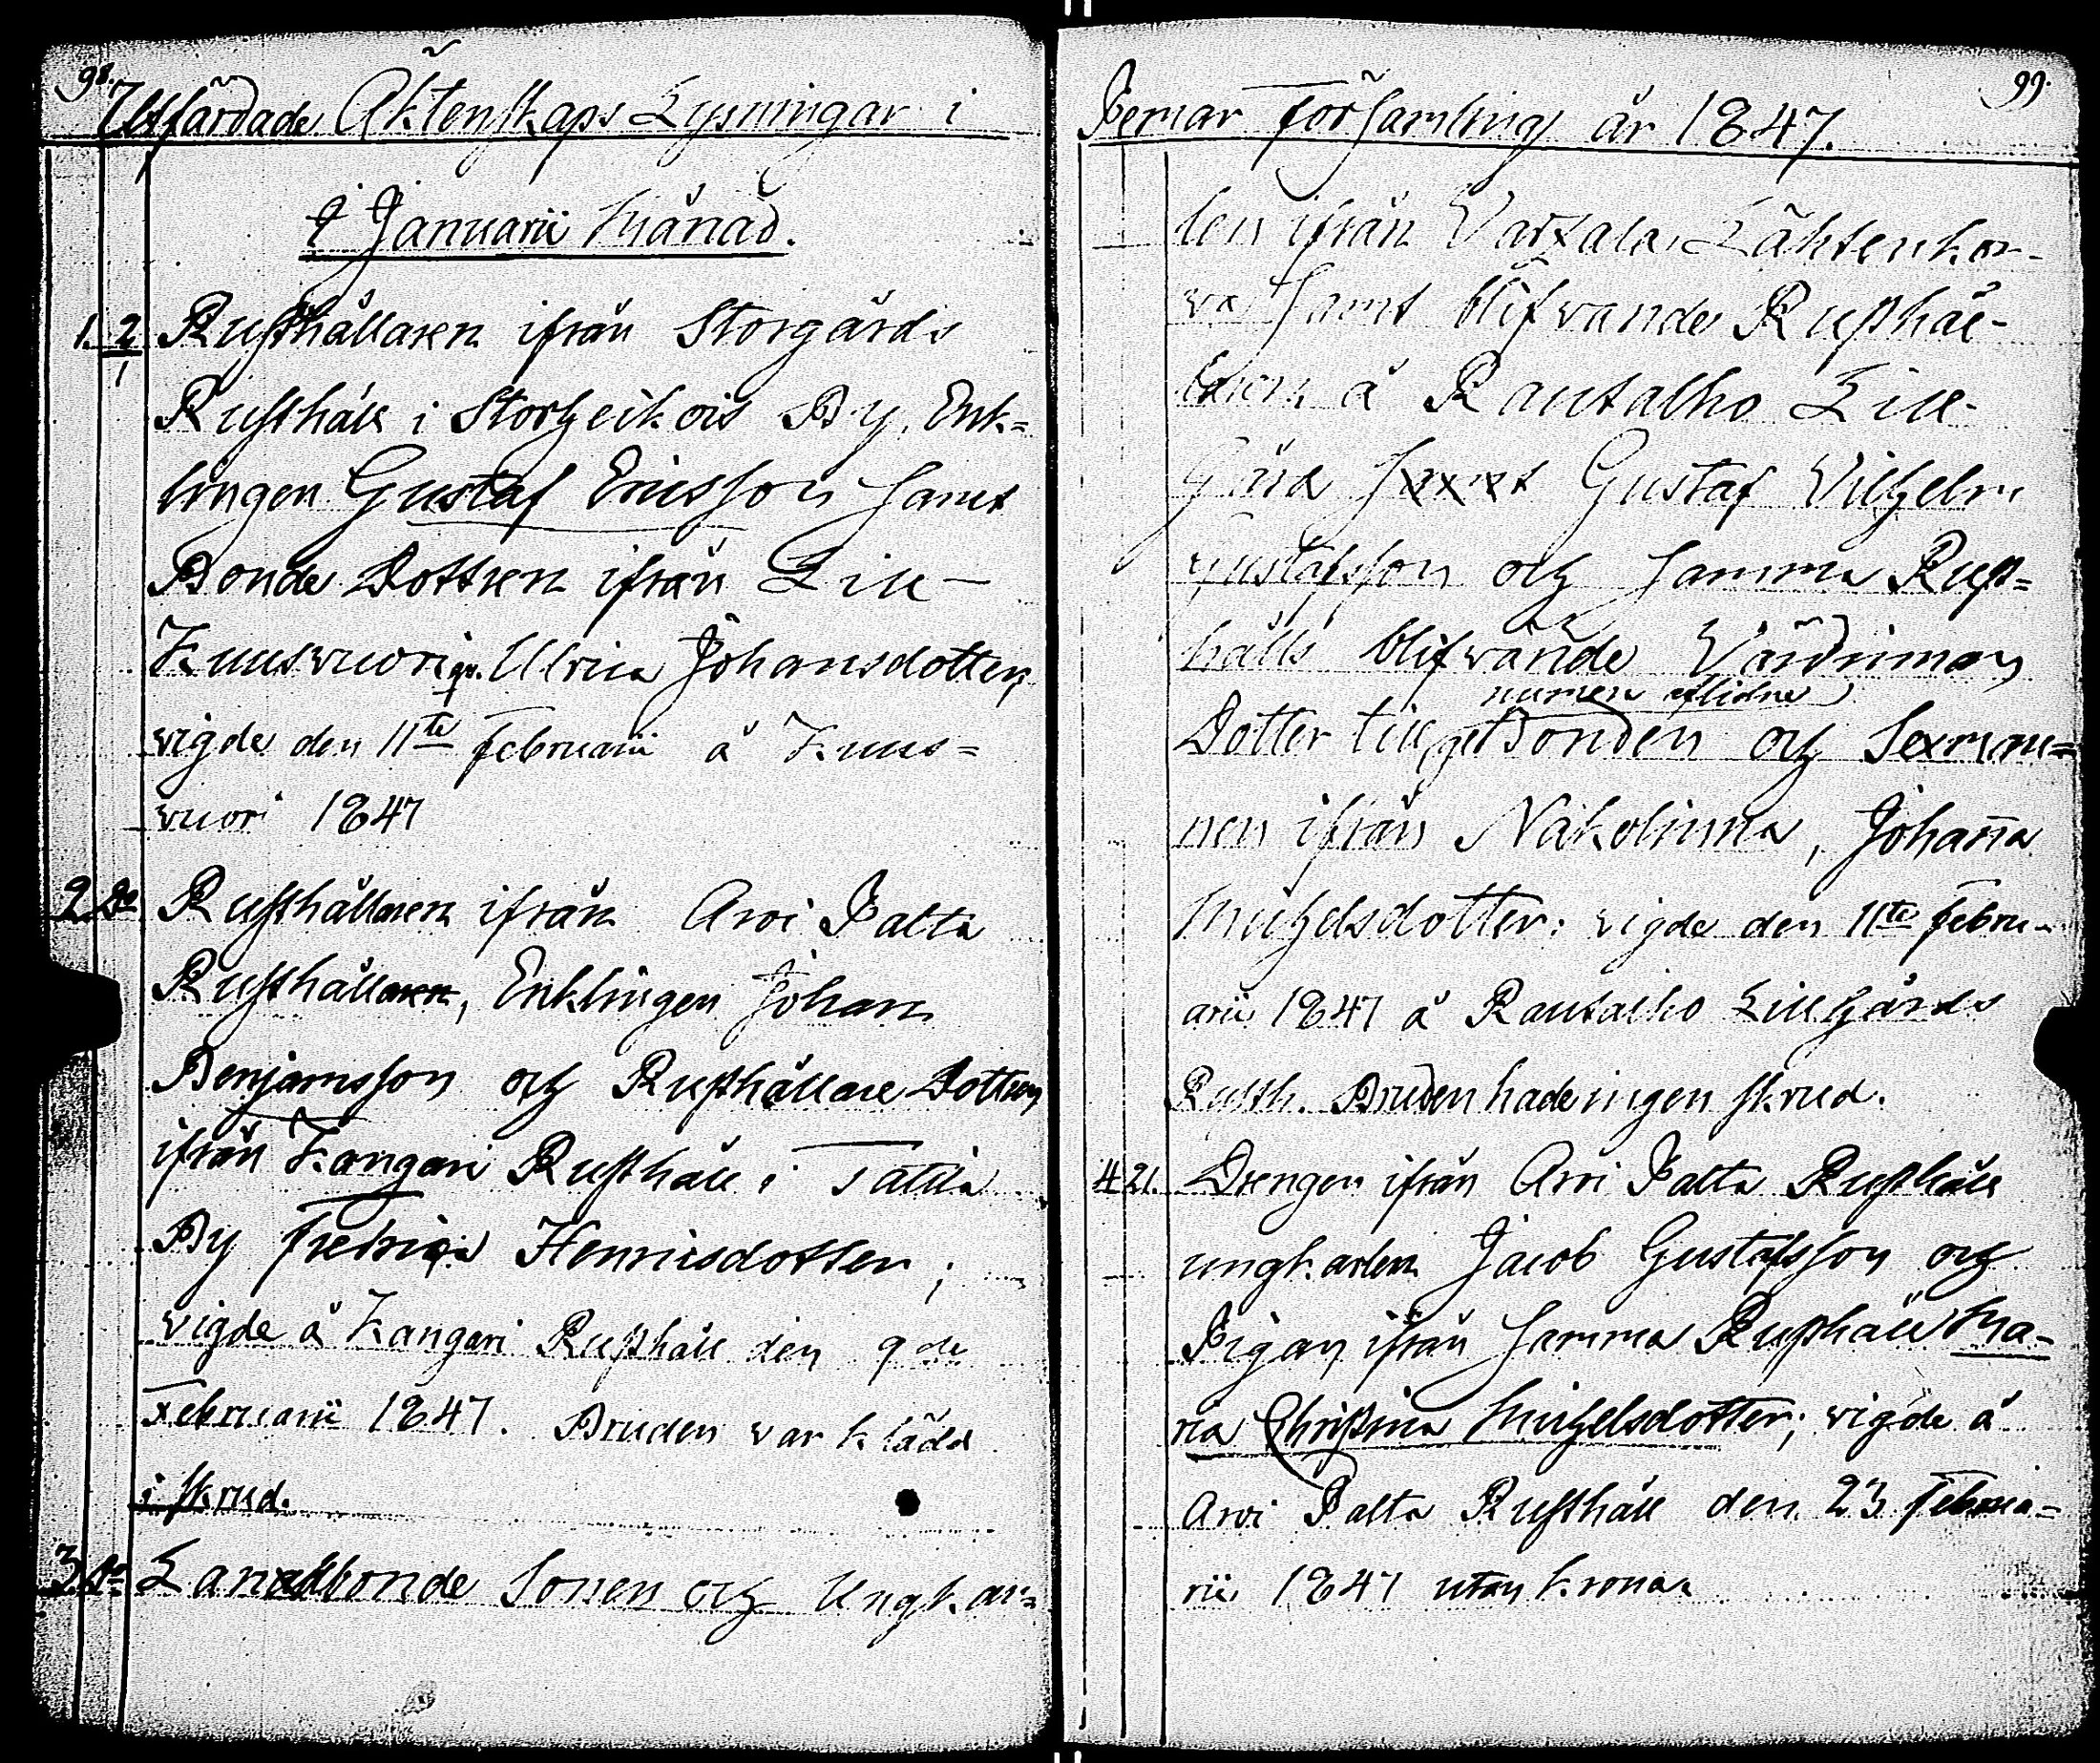 98.
Utfärdade Äktenskaps Lysningar i
i Januarii Månad.
1. 2/1 Rusthållaren ifrån Storgårds
Rusthåll i Storheikois By, Enk=
lingen Gustaf Ericsson samt
Bonde Dottren ifrån Lill-
Kuusvuori Ulrica Johansdotter,
vigde den 11te Februarii å Kuus=
vuori 1847
2. Do Rusthållaren ifrån Arvi Paltta
Rusthållaren, Enklingen Johan
Benjamsson och Rusthållare Dottren
ifrån Kangari Rusthåll i Tättilä
By Fredrica Henricsdotter;
vigde å Kangari Rusthåll den 9de
Februarii 1847. Bruden var klädd
i skrud.
3. Do Landbonde Sonen och Ungkar=
99.
Pemar Församling år 1847.
len ifrån Vartsala, Lähtenkor-
va samt blifvande Rusthål-
laren å Rautalho Lill-
Gård samt Gustaf Vilhelm
Gustafsson och samma Rust=
hålls blifvande Värdinnan
numera aflidne
Dotter till Bonden och Sexman=
nen ifrån Näkolinna, Johanna
Michelsdotter: vigde den 11te Febru-
arii 1847 å Rautalho Lillgårds
Rusth. Bruden hade ingen skrud.
4. 21. Drengen ifrån Arvi Paltta Rusthåll
ungkarlen Jacob Gustafsson och
Pigan ifrån samma Rusthåll Ma-
ria Christina Michelsdotter; vigde å
Arvi Paltta Rusthåll den 23 Februa=
rii 1847 utan krona